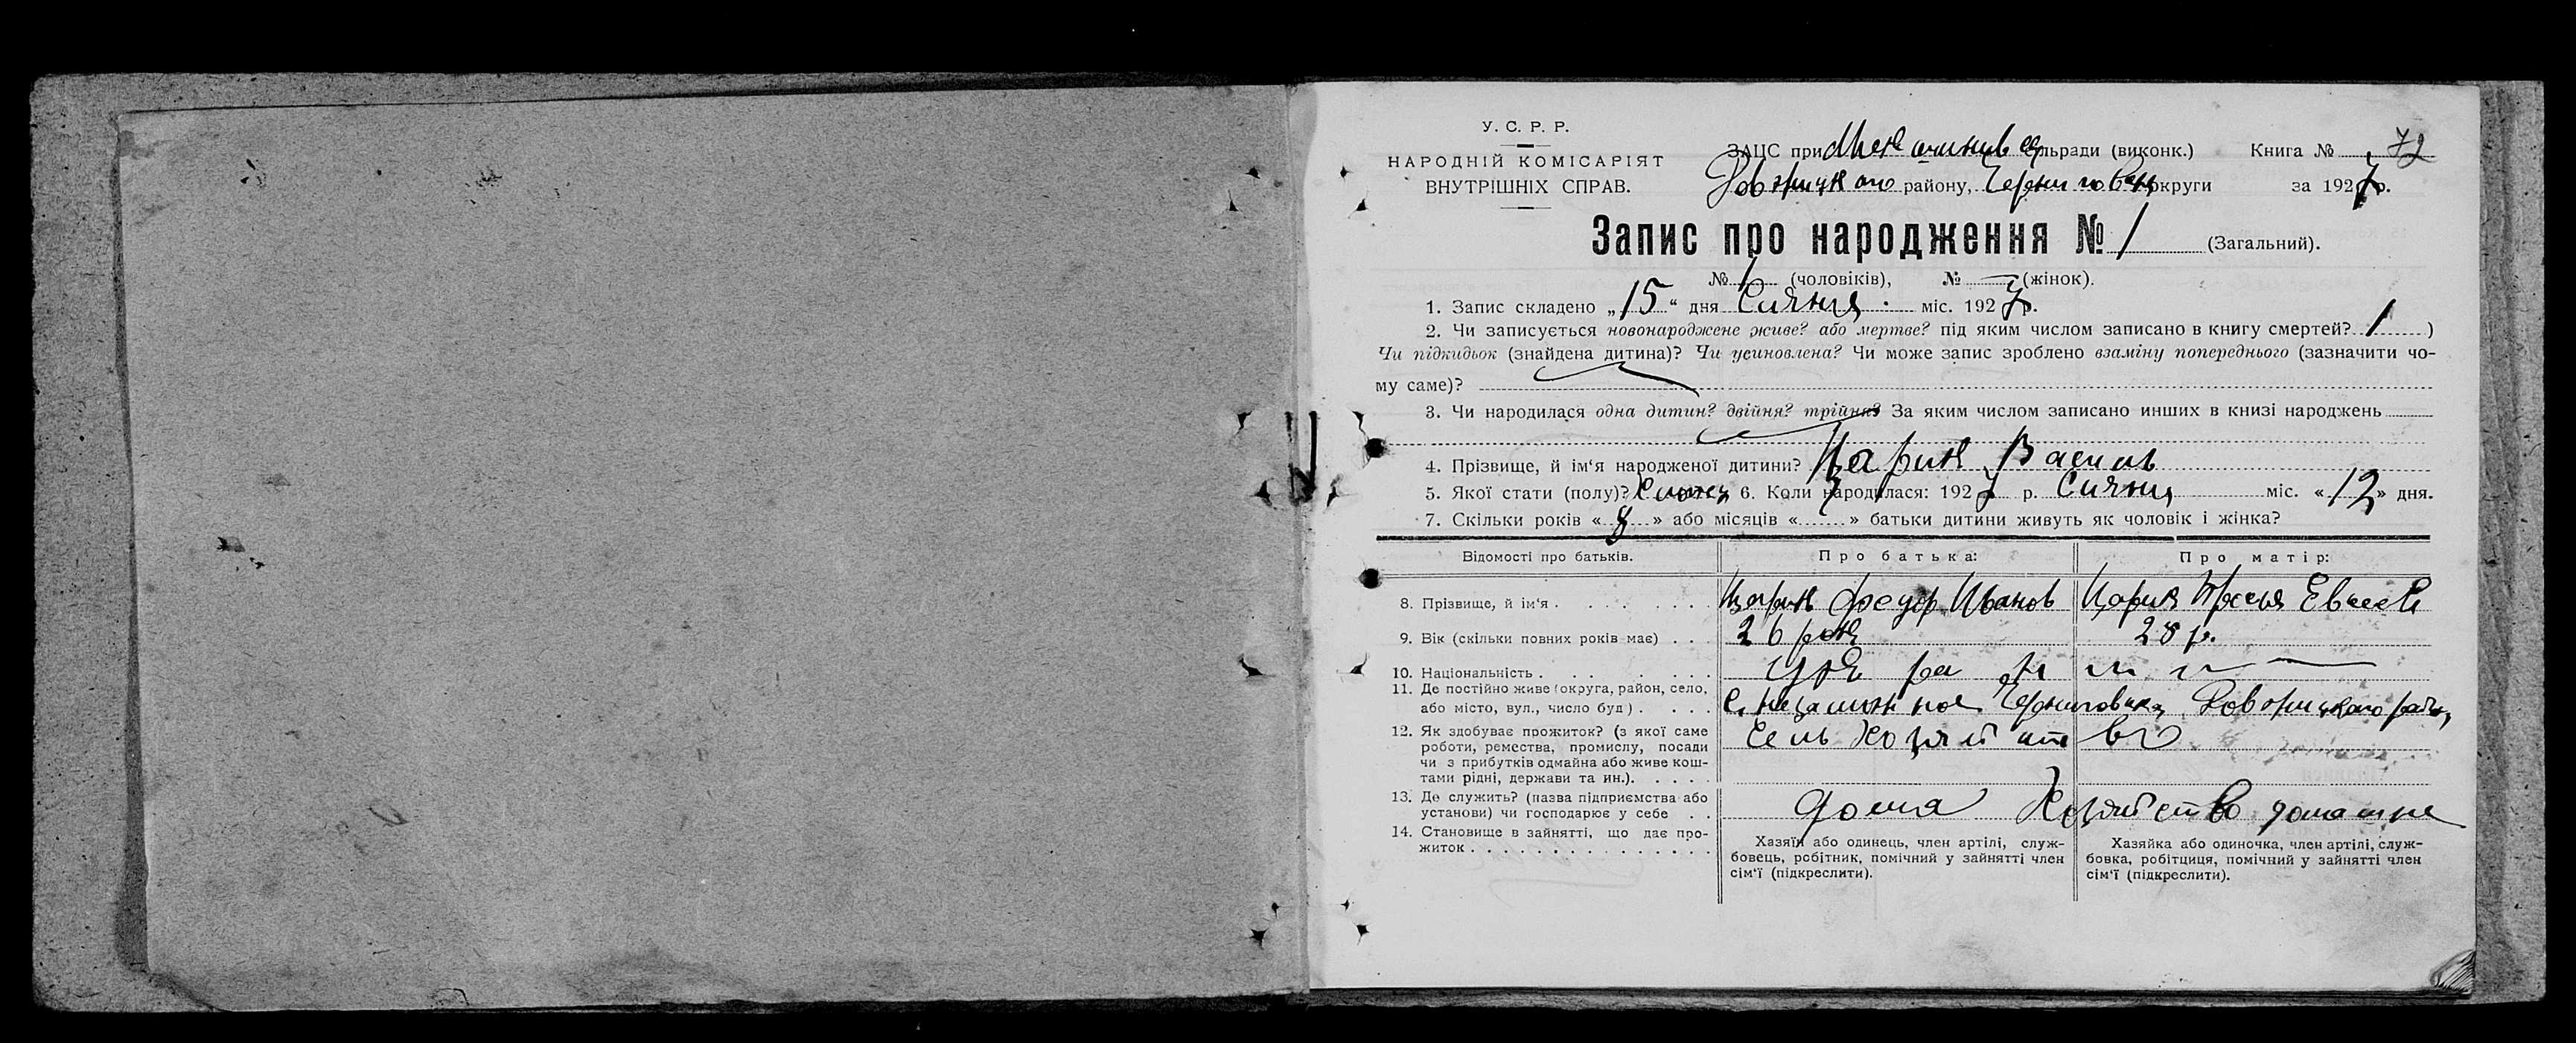 У. С. Р. Р.
НАРОДНІЙ КОМІСАРІЯТ
ВНУТРІШНІХ СПРАВ.
ЗАЦС при сільради (виконк.) Книга № 72
району, округи за 1927 р.
Запис про народження № 1 (Загальний).
№ 1 (чоловіків), № — (жінок).
1. Запис складено „15“ дня Січня міс. 1927 р.
2. Чи записується новонароджене живе? або мертве? під яким числом записано в книгу смертей? )
Чи підкидьок (знайдена дитина)? Чи усиновлена? Чи може запис зроблено взаміну попереднього (зазначити чо-
му саме)?
3. Чи народилася одна дитин? двійня? трійня? За яким числом записано инших в книзі народжень
4. Прізвище, й ім‘я народженої дитини? Царик Василь
5. Якої стати (полу)? 6. Коли народилася: 1927 р. Січня міс. «12» дня.
7. Скільки років «8» або місяців « » батьки дитини живуть як чоловік і жінка?
Відомості про батьків. Про батька: Про матір:
8. Прізвище, й ім‘я Царик Федор Иванов Царик
9. Вік (скільки повних років має) 26 28 р.
10. Національність
11. Де постійно живе (округа, район, село,
або місто, вул., число буд)
12. Як здобуває прожиток? (з якої саме
роботи, ремества, промислу, посади
чи з прибутків одмайна або живе кош-
тами рідні, держави та ин.).
Сель Хозяйство
13. Де служить? (назва підприємства або
установи) чи господарює у себе
дома Хозяйство
14. Становище в зайнятті, що дає про-
житок
Хазяїн або одинець, член артілі, служ-
бовець, робітник, помічний у зайнятті член
сім‘ї (підкреслити).
Хазяйка або одиночка, член артілі, служ-
бовка, робітциця, помічний у зайнятті член
сім‘ї (підкреслити).